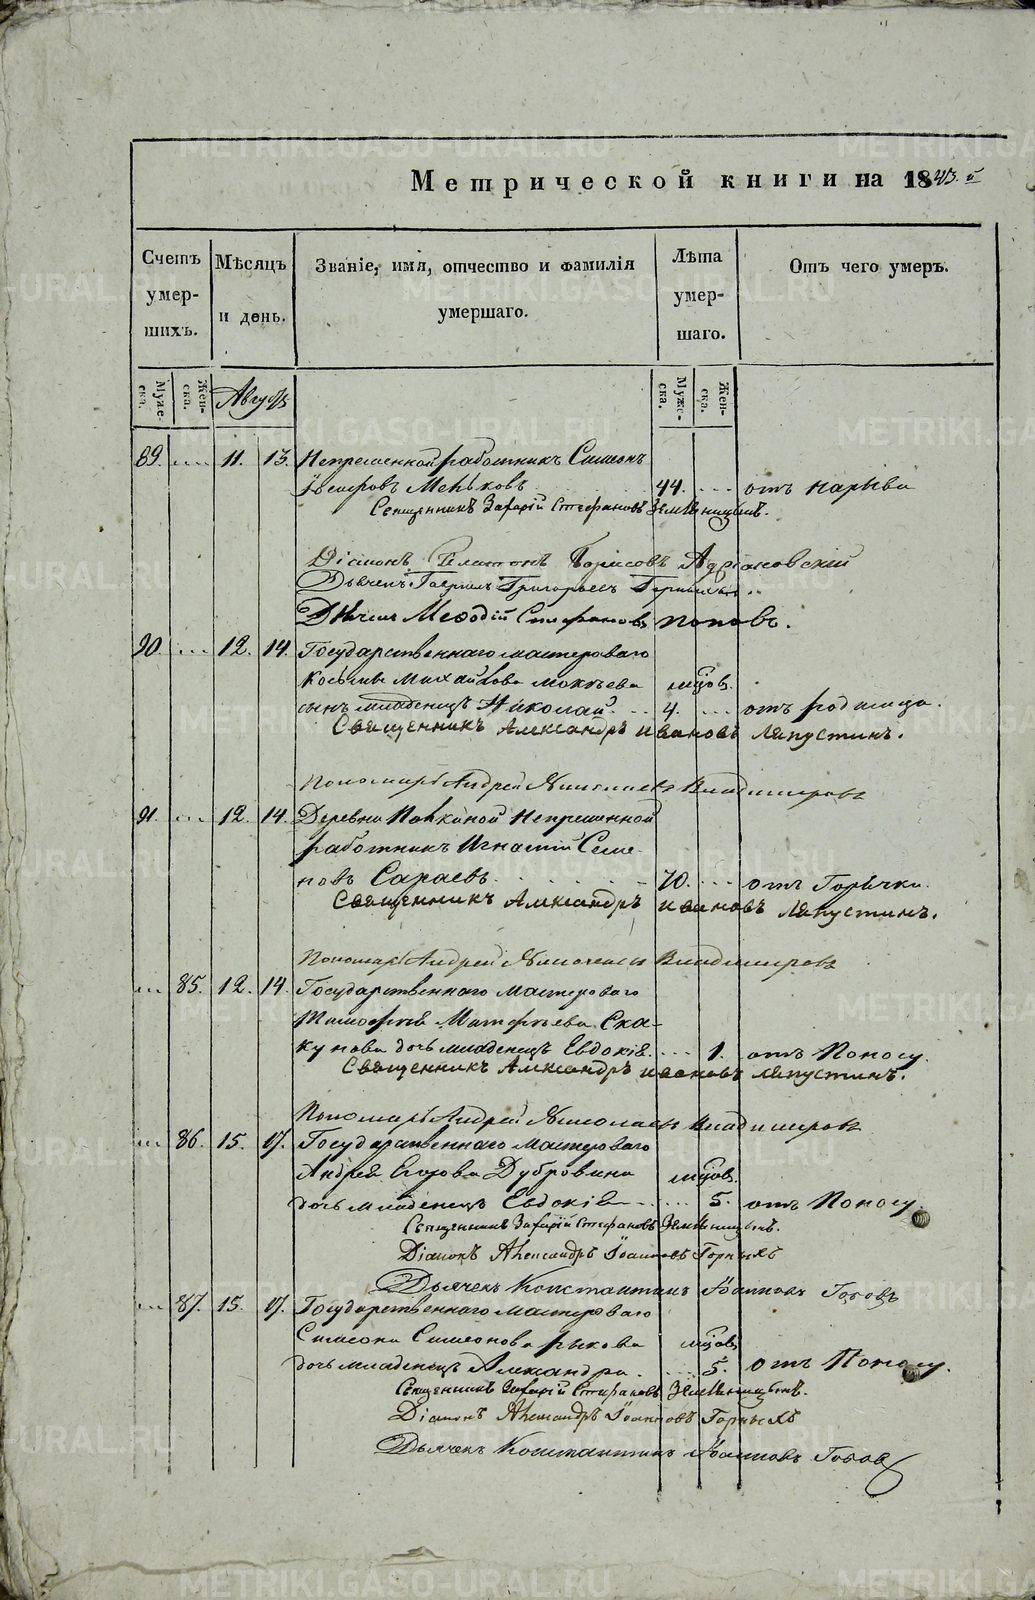 Метрической книги на 1843.й
Счетъ умер-шихъ.
Мѣсяцъ и день.
Званіе, имя, отчество и фамилія умершаго.
Лѣта умер-шаго.
Отъ чего умеръ.
Муже-ска.
Жен-ска.
Августъ
Муже-ска.
Жен-ска.
89. .... 11. 13. Непременной работникъ Симеонъ
Меньковъ 44. .... отъ нарыва
Священникъ Захарій Стефановъ Земляницынъ.
Діаконъ Платонъ Борисовъ Адріановскій
Дьячекъ Гавріилъ Григорьевъ
Дьячекъ Меѳодій Стефановъ Поповъ.
90. .... 12. 14. Государственнаго мастероваго
Косьмы Михайлова Мокѣева мцов.
сынъ младенецъ Николай 4. .... отъ родимца.
Священникъ Александръ Ивановъ Ляпустинъ.
Пономарь Андрей Николаевъ Владимировъ
91. .... 12. 14. Деревни Непременной
работникъ Игнатій Семе-
новъ Сараевъ 70. .... отъ Горячки.
Священникъ Александръ Ивановъ Ляпустинъ.
Пономарь Андрей Николаевъ Владимировъ
.... 85. 12. 14. Государственнаго Мастероваго
Тимофѣя Матфѣева Ска-
кунова дочь младенецъ Евдокія. .... 1. отъ Поносу.
Священникъ Александръ Ивановъ Ляпустинъ.
Пономарь Андрей Николаевъ Владимировъ
.... 86. 15. 17. Государственнаго Мастероваго
Андрея Егорова Дубровина мцов.
дочь младенецъ Евдокія .... 5. отъ Поносу.
Священникъ Захарій Стефановъ Земляницынъ.
Діаконъ Александръ Іоанновъ Горныхъ
Дьячекъ Константинъ Іоанновъ
.... 87. 15. 17. Государственнаго мастероваго
Симеона Симеонова Рыкова мцов.
дочь младенецъ Александра. .... 5. отъ Поносу.
Священникъ Захарій Стефановъ Земляницынъ.
Діаконъ Александръ Іоанновъ Горныхъ
Дьячекъ Константинъ Іоанновъ
METRIKI.GASO-URAL.RU